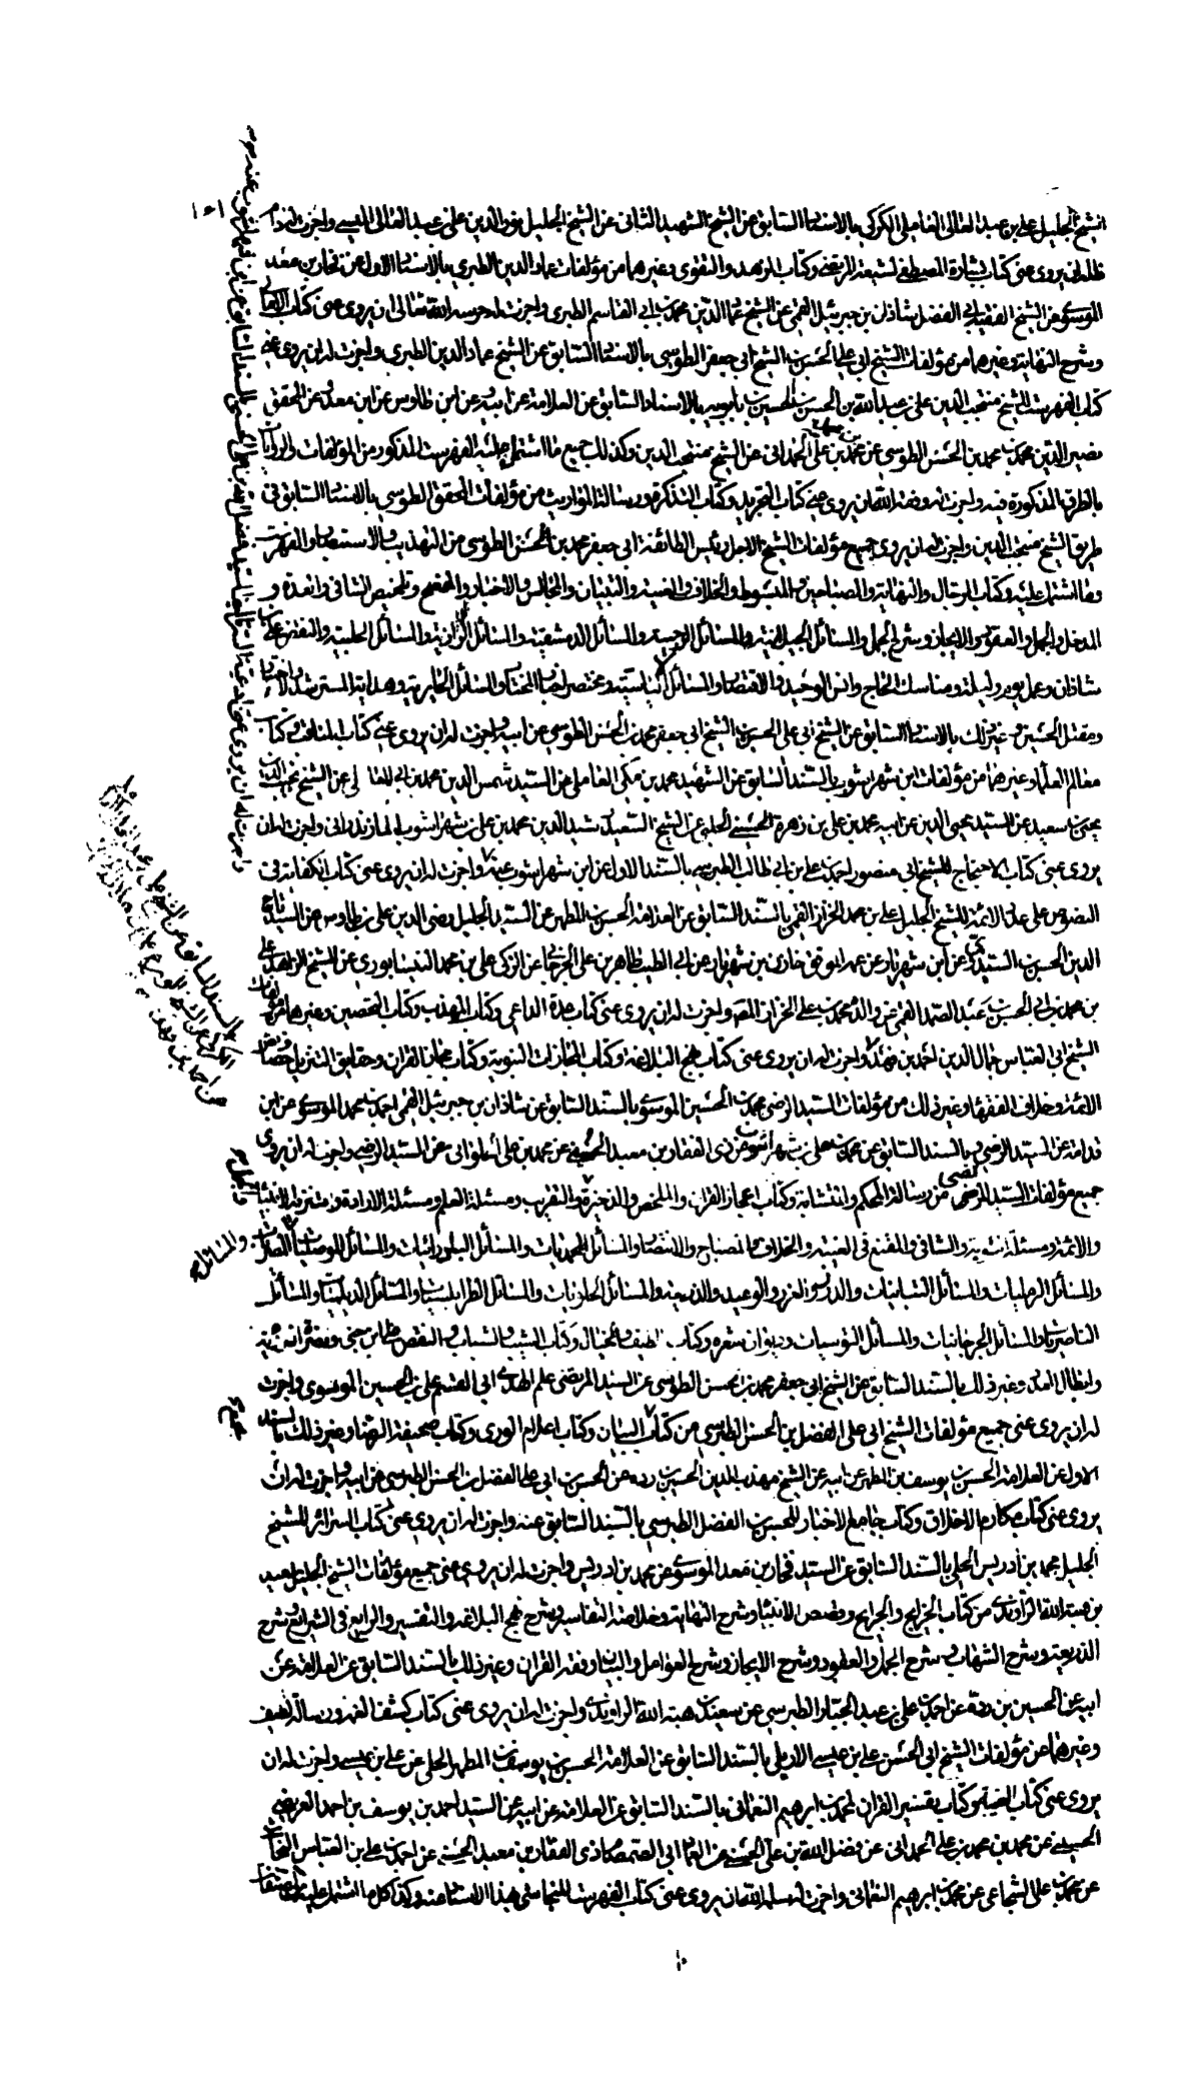 الشيخ الجليل علي بن عبد العالي العاملي الكركي بالاسناد السابق عن الشيخ الشهيد الثاني عن الشيخ الجليل نور الدين علي بن عبد العالي الميسي واجزت له دام
ظله ان يروي عني كتاب بشارة المصطفى لشيعة المرتضى وكتاب الزهد والتقوى وغيرهما من مؤلفات عماد الدين الطبري بالاسناد الاول عن فخار بن معد
الموسوي عن الشيخ الفقيه ابي الفضل شاذان بن جبرئيل القمي عن الشيخ عماد الدين محمد بن ابي القاسم الطبري واجزت له حرسه الله تعالى ان يروي عني كتاب الامالي
وشرح النهاية وغيرهما من مؤلفات الشيخ ابي علي الحسن بن الشيخ ابي جعفر الطوسي بالاسناد السابق عن الشيخ عماد الدين الطبري واجزت له ان يروي عني
كتاب الفهرست للشيخ منتجب الدين علي بن عبيد الله بن الحسن بن الحسين بن بابويه بالاسناد السابق عن العلامة عن ابيه عن ابن طاوس عن ابن معد عن المحقق
نصير الدين محمد بن محمد بن الحسن الطوسي عن محمد بن علي الحمداني عن الشيخ منتجب الدين وكذلك جميع ما اشتمل عليه الفهرست المذكور من المؤلفات والروايات
بالطرق المذكورة فيه واجزت له وفقه الله ان يروي عني كتاب التجريد وكتاب التذكرة ورسالة المواريث من مؤلفات المحقق الطوسي بالاسناد السابق في
طريق الشيخ منتجب الدين واجزت له ان يروي جميع مؤلفات الشيخ الاجل رئيس الطائفة ابي جعفر محمد بن الحسن الطوسي من التهذيب والاستبصار والفهرست
وما اشتمل عليه وكتاب الرجال والنهاية والمصباحين والمبسوط والخلاف والغيبة والتبيان والمجالس والاخبار والمفصح وتلخيص الشافي والعدة و
المدخل والجمل والعقود والايجاز وشرح الجمل والمسائل الجنبلائية والمسائل الرجبية والمسائل الدمشقية والمسائل الرازية والمسائل الحلبية والنقض على
شاذان وعمل يوم وليلة ومناسك الحاج وانس الوحيد والاقتصاد والمسائل الياسية ومختصر اخبار المختار والمسائل الحائرية وهداية المسترشد
ومقتل الحسين وغير ذلك بالاسناد السابق عن الشيخ ابي علي الحسن بن الشيخ ابي جعفر محمد بن الحسن الطوسي عن ابيه واجزت له ان يروي عني كتاب المناقب وكتاب
معالم العلماء وغيرهما من مؤلفات ابن شهراشوب بالسند السابق عن الشهيد محمد بن مكي العاملي عن السيد شمس الدين محمد بن ابي المعالي عن الشيخ نجيب الدين
يحيى بن سعيد عن السيد محيي الدين عن ابيه محمد بن علي بن زهرة الحسيني الحلبي عن الشيخ السعيد رشيد الدين محمد بن علي بن شهراشوب المازندراني واجزت له ان
يروي عني كتاب الاحتجاج للشيخ ابي منصور احمد بن علي بن ابي طالب الطبرسي بالسند الاول عن ابن شهراشوب عنه واجزت له ان يروي عني كتاب الكفاية في
النصوص على عدد الائمة للشيخ الجليل علي بن محمد الخزاز القمي بالسند السابق عن العلامة الحسن بن المطهر عن السيد الجليل رضي الدين علي بن طاوس عن السيد تاج
الدين الحسن بن السندي عن ابن شهريار عن عمه الموفق خازن بن شهريار عن ابي الطيب طاهر بن علي الجرجاني عن الزكي علي بن محمد النيسابوري عن الشيخ الزاهد علي
بن محمد بن ابي الحسن بن عبد الصمد القمي عن والده محمد بن علي الخزاز القمي واجزت له ان يروي عني كتاب عدة الداعي وكتاب المهذب وكتاب التحصين وغيرها من مؤلفات
الشيخ ابي العباس جمال الدين احمد بن فهد واجزت له ان يروي عني كتاب نهج البلاغة وكتاب المجازات النبوية وكتاب مجاز القران وحقايق التنزيل وخصائص
الائمة وخلاف الفقهاء وغير ذلك من مؤلفات السيد الرضي محمد بن الحسين الموسوي بالسند السابق عن شاذان بن جبرئيل القمي عن احمد بن محمد الموسوي عن ابن
قدامة عن السيد الرضي وبالسند السابق عن محمد بن علي بن شهراشوب عن ذي الفقار بن معبد الحسني عن محمد بن علي الحلواني عن السيد الرضي واجزت له ان يروي
جميع مؤلفات السيد المرتضى من رسالة المحكم والمتشابه وكتاب اعجاز القران والملخص والذخيرة والتقريب ومسئلة العلم ومسئلة الارادة وتنزيه الانبياء
والائمة ومسئلة والشافي والمقنع في الغيبة والخلاف والمصباح والانتصار والمسائل المحمديات والمسائل البادرائيات والمسائل الموصليات
والمسائل الرمليات والمسائل التبانيات والدرر والغرر والوعيد والذريعة والمسائل الحلبيات والمسائل الطرابلسيات والمسائل الديلميات والمسائل
الناصريات والمسائل الجرجانيات والمسائل الطوسيات وديوان شعره وكتاب الطيف والخيال وكتاب الشيب والشباب والنقض على ابن جني
وابطال القياس وغير ذلك بالسند السابق عن الشيخ ابي جعفر محمد بن الحسن الطوسي عن السيد المرتضى علم الهدى ابي القسم علي بن الحسين الموسوي واجزت
له ان يروي عني جميع مؤلفات الشيخ ابي علي الفضل بن الحسن الطبرسي من كتاب البيان وكتاب اعلام الورى وكتاب صحيفة الرضا وغير ذلك بالسند
الاول عن العلامة الحسن بن يوسف بن المطهر عن ابيه عن الشيخ مهذب الدين الحسين بن رده عن الحسن بن ابي علي الفضل بن الحسن الطبرسي عن ابيه واجزت له ان
يروي عني كتاب مكارم الاخلاق وكتاب جامع الاخبار للحسن بن الفضل الطبرسي بالسند السابق عنه واجزت له ان يروي عني كتاب السرائر للشيخ
الجليل محمد بن ادريس الحلي بالسند السابق عن السيد فخار بن معد الموسوي عن محمد بن ادريس واجزت له ان يروي عني جميع مؤلفات الشيخ الجليل سعيد
بن هبة الله الراوندي من كتاب الخرايج والجرايح وقصص الانبياء وشرح النهاية وخلاصة التفاسير وشرح نهج البلاغة والتفسير والرايع في الشرايع وشرح
الذريعة وشرح الشهاب وشرح الجمل والعقود وشرح الايجاز وشرح العوامل والبيان وفقه القران وغير ذلك بالسند السابق عن العلامة عن
ابيه عن الحسين بن رده عن احمد بن علي بن عبد الجبار الطبرسي عن سعيد بن هبة الله الراوندي واجزت له ان يروي عني كتاب كشف الغمة ورسالة الطيف
وغيرهما من مؤلفات الشيخ ابي الحسن علي بن عيسى الاربلي بالسند السابق عن العلامة الحسن بن يوسف بن المطهر الحلي عن علي بن عيسى واجزت له ان
يروي عني كتاب الغيبة وكتاب تفسير القران لمحمد بن ابراهيم النعماني بالسند السابق عن العلامة عن ابيه عن السيد احمد بن يوسف بن احمد العريضي
الحسيني عن محمد بن محمد بن علي الحمداني عن فضل الله بن علي الحسني عن العماد ابي الصمصام ذي الفقار بن معبد الحسني عن احمد بن علي بن العباس النجاشي
عن محمد بن علي الشجاعي عن محمد بن ابراهيم النعماني واجزت له سلمه الله ان يروي عني كتاب الفهرست للنجاشي بهذا الاسناد عنه وكذا كل ما اشتمل عليه